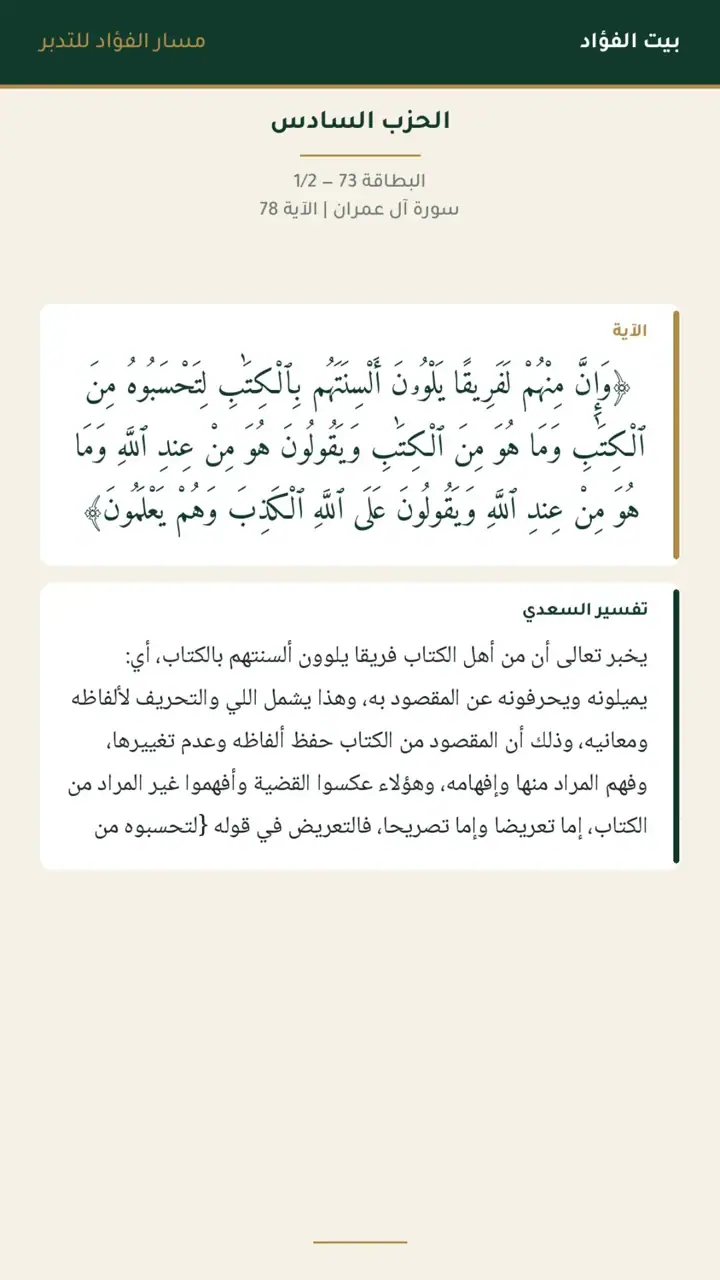 بيت الفؤاد
مسار الفؤاد للتدبر
الحزب السادس
البطاقة 73 – 1/2
سورة آل عمران | الآية 78
الآية
﴿وَإِنَّ مِنْهُمْ لَفَرِيقًا يَلْوُۥنَ أَلْسِنَتَهُم بِٱلْكِتَٰبِ لِتَحْسَبُوهُ مِنَ
ٱلْكِتَٰبِ وَمَا هُوَ مِنَ ٱلْكِتَٰبِ وَيَقُولُونَ هُوَ مِنْ عِندِ ٱللَّهِ وَمَا
هُوَ مِنْ عِندِ ٱللَّهِ وَيَقُولُونَ عَلَى ٱللَّهِ ٱلْكَذِبَ وَهُمْ يَعْلَمُونَ﴾
تفسير السعدي
يخبر تعالى أن من أهل الكتاب فريقا يلوون ألسنتهم بالكتاب، أي:
يميلونه ويحرفونه عن المقصود به، وهذا يشمل اللي والتحريف لألفاظه
ومعانيه، وذلك أن المقصود من الكتاب حفظ ألفاظه وعدم تغييرها،
وفهم المراد منها وإفهامه، وهؤلاء عكسوا القضية وأفهموا غير المراد من
الكتاب، إما تعريضا وإما تصريحا، فالتعريض في قوله {لتحسبوه من